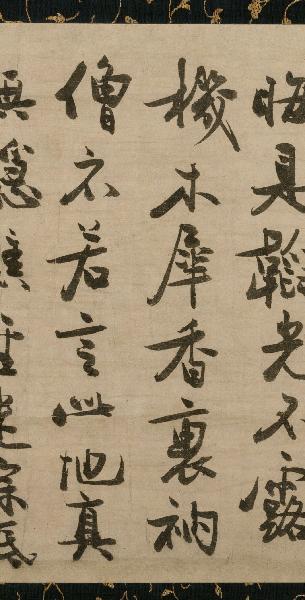 晦是韜光不露
機木犀香裏衲
僧不若言此地真
無隱